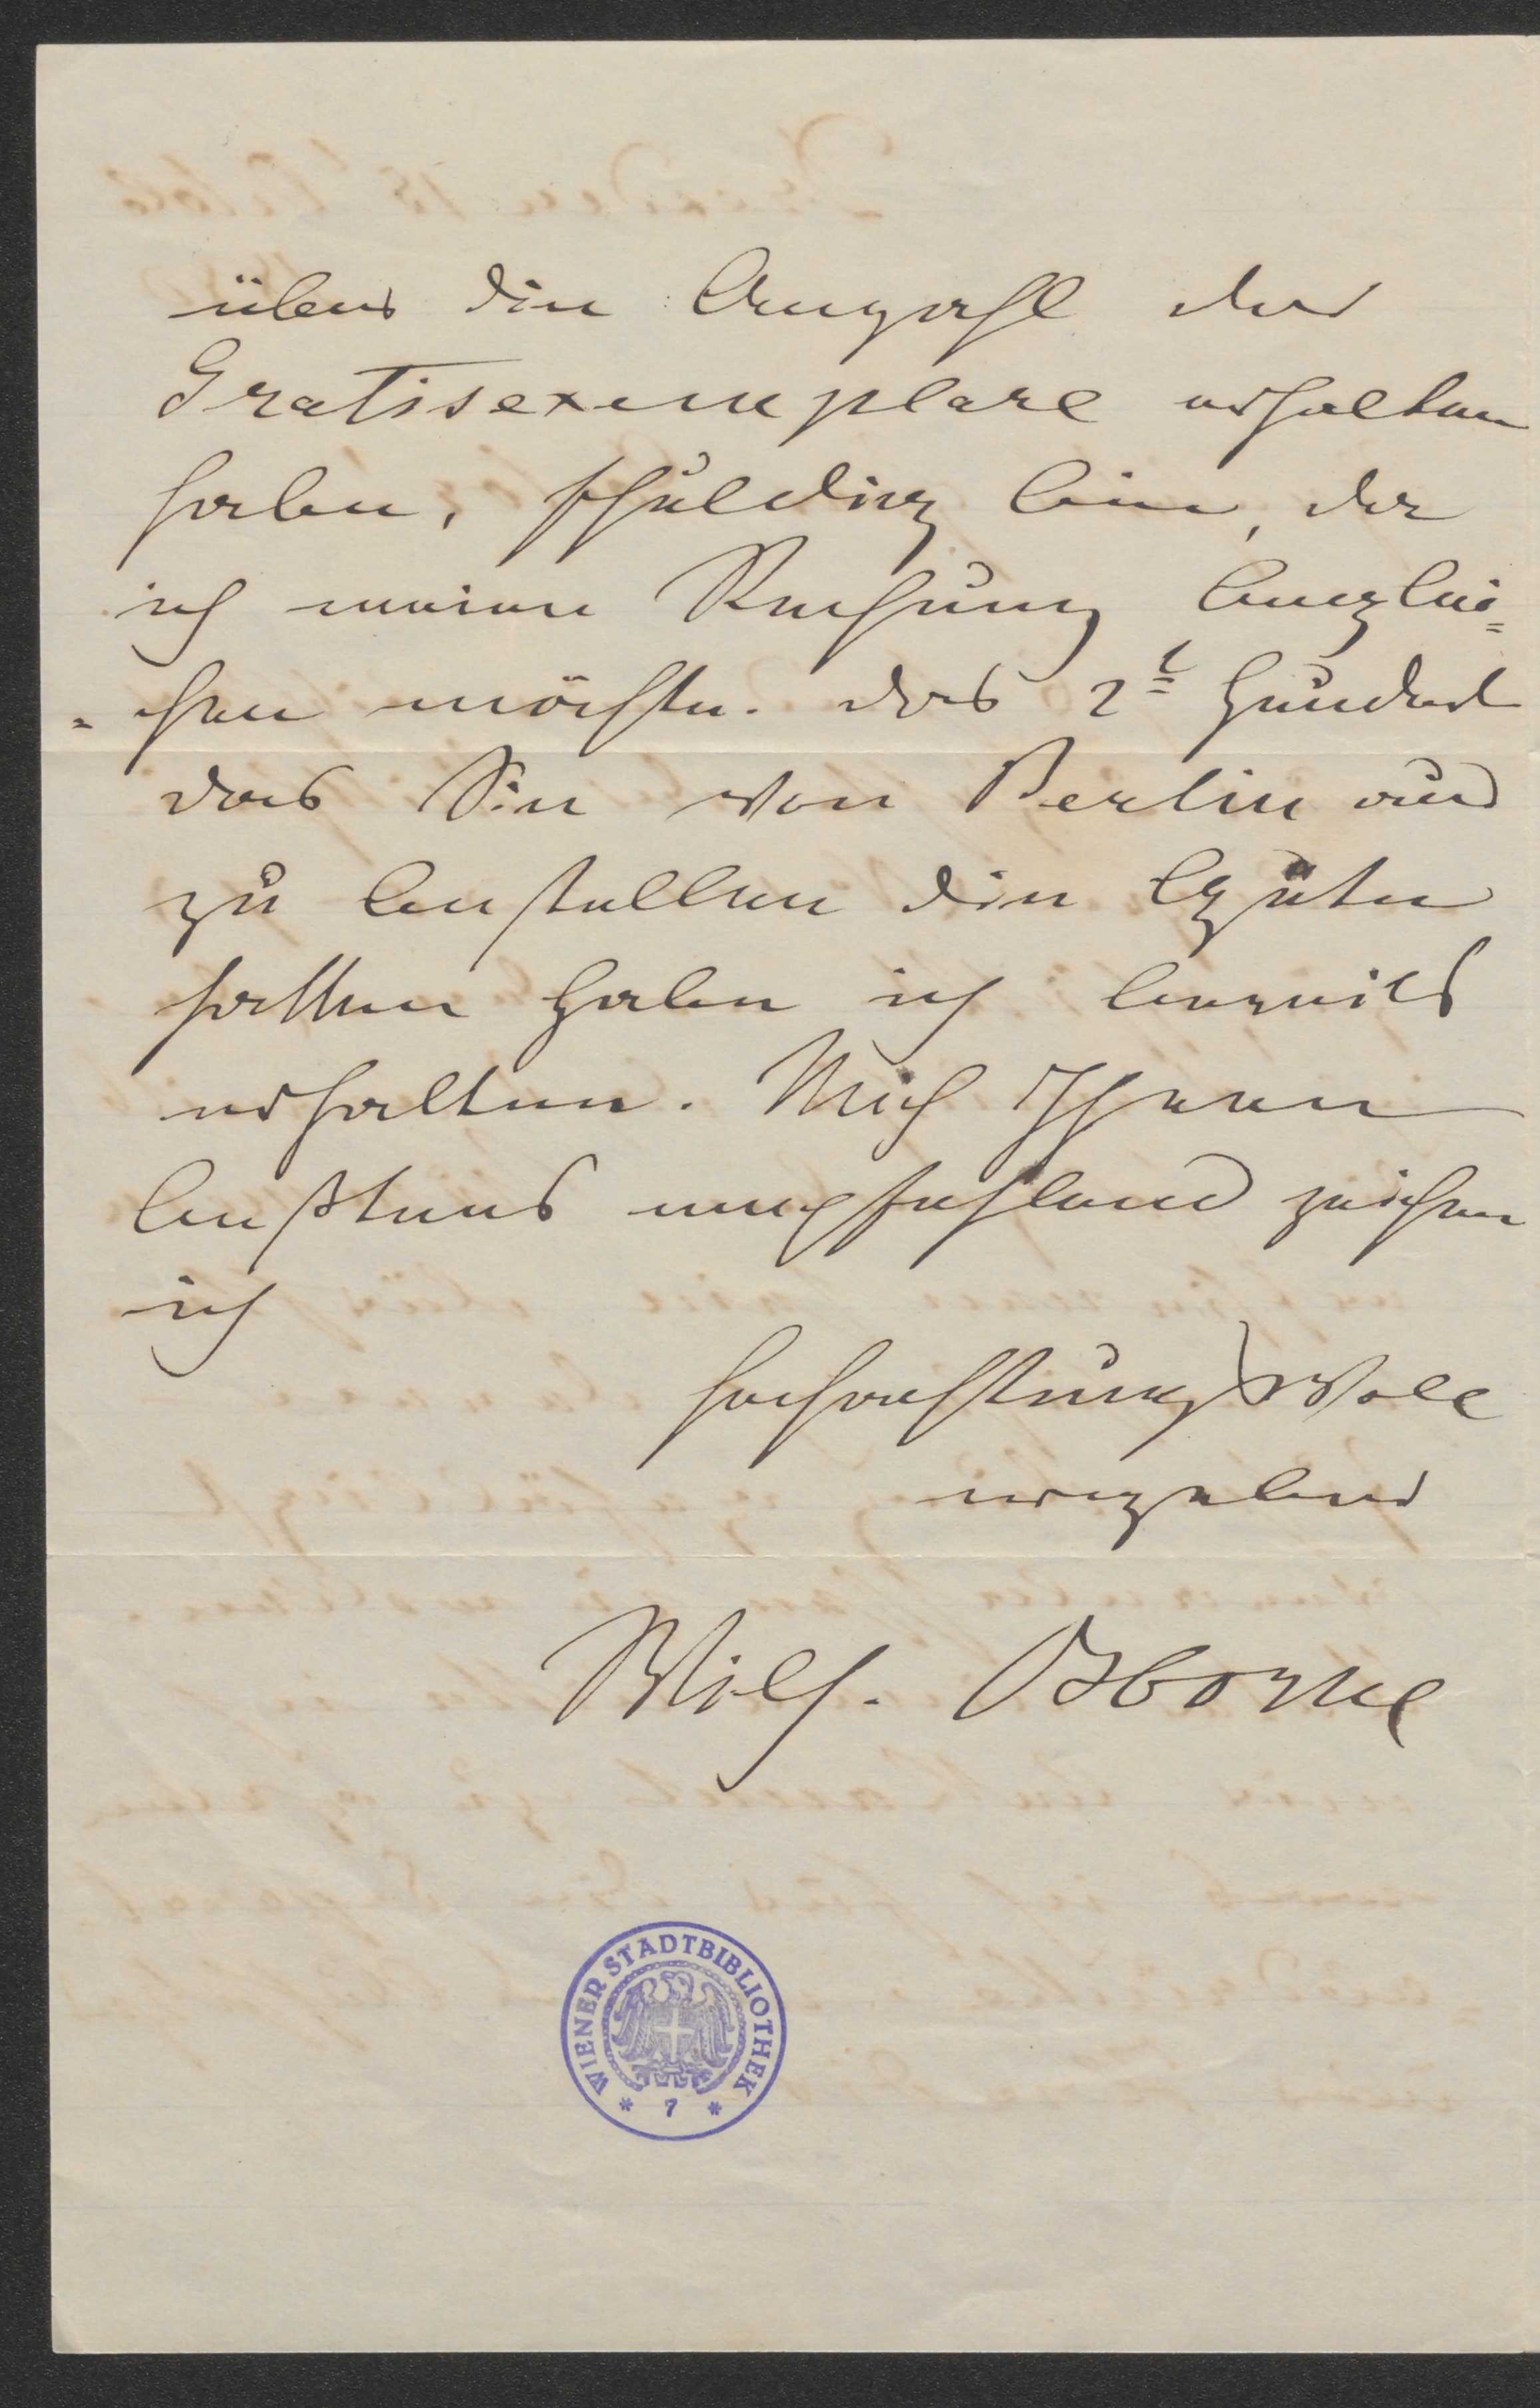 über die Anzahl der
Gratisexemplare erhalten
haben, schuldig bin, da
ich meine Rechnung beglei=
=chen möchte. Das 2te Hundert
das Sie von Berlin aus
zu bestellen die Güte
hatten habe ich bereits
erhalten. Mich Ihnen
bestens empfehlend zeichne
ich
hochachtungsvoll
ergebenst
Wilh. Osborne
WIENER STADTBIBLIOTHEK
* 7 *